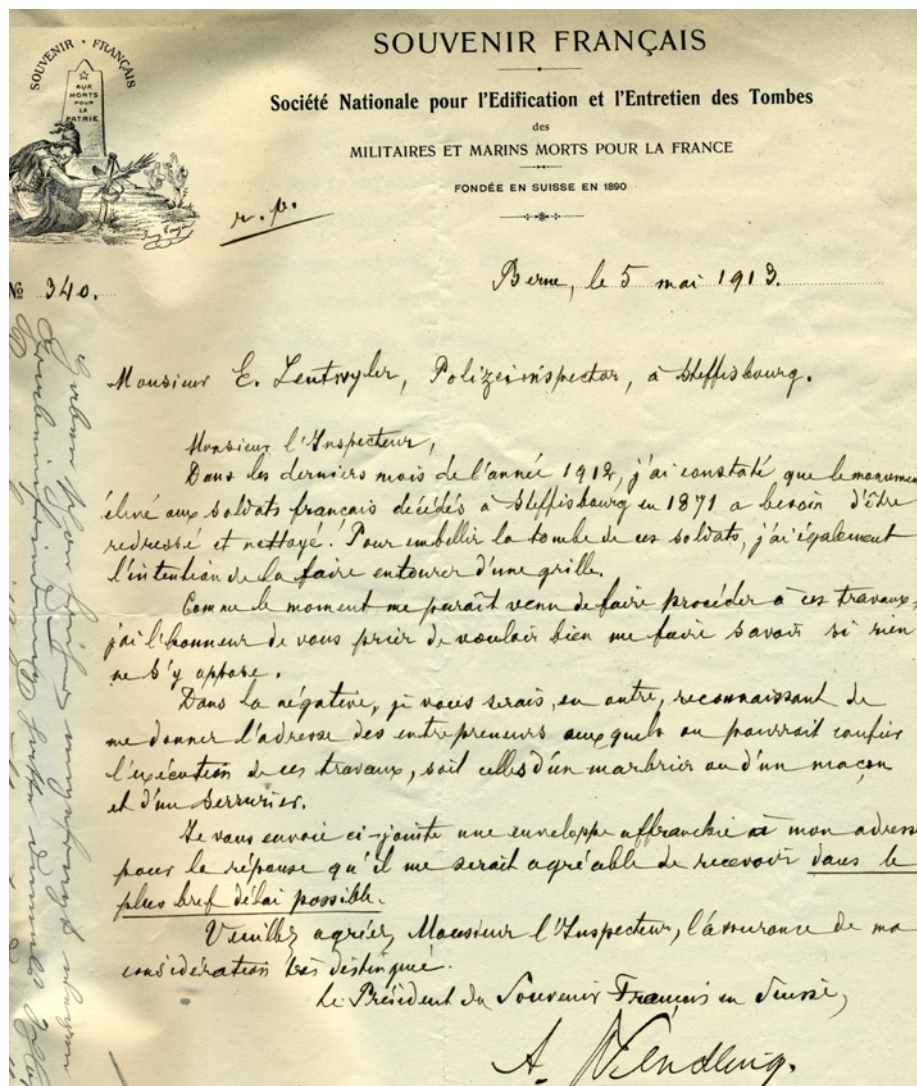 SOUVENIR · FRANÇAIS
AUX
MORTS
POUR
LA
PATRIE
SOUVENIR FRANÇAIS
Société Nationale pour l'Edification et l'Entretien des Tombes
des
MILITAIRES ET MARINS MORTS POUR LA FRANCE
FONDÉE EN SUISSE EN 1890
r. p.
№ 340.
Berne, le 5 mai 1913.
Monsieur E. Leutwyler, Polizeiinspector, à Steffisbourg.
Monsieur l'Inspecteur,
Dans les derniers mois de l'année 1912, j'ai constaté que le monumen
élevé aux soldats français décédés à Steffisbourg en 1871 a besoin d'être
redressé et nettoyé. Pour embellir la tombe de ces soldats, j'ai également
l'intention de la faire entourer d'une grille.
Comme le moment me paraît venu de faire procéder à ces travaux,
j'ai l'honneur de vous prier de vouloir bien me faire savoir si rien
ne s'y oppose.
Dans la négative, je vous serais, en outre, reconnaissant de
me donner l'adresse des entrepreneurs auxquels on pourrait confier
l'exécution de ces travaux, soit celles d'un marbrier ou d'un maçon
et d'un serrurier.
Je vous envoie ci-jointe une enveloppe affranchie à mon adress
pour la réponse qu'il me serait agréable de recevoir dans le
plus bref délai possible.
Veuillez agréer, Monsieur l'Inspecteur, l'assurance de ma
considération très distinguée.
Le Président du Souvenir Français en Suisse,
A. Wendling.